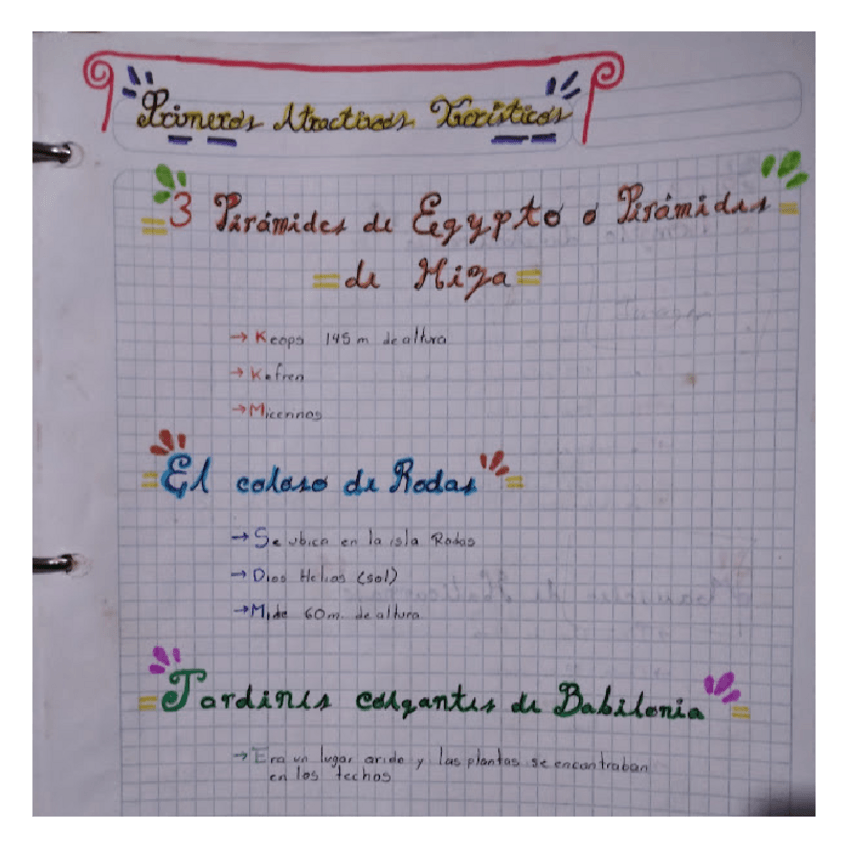 Primeros Atractivos Turísticos
3 Pirámides de Egypto o Pirámides
de Hiza
→ Keops 145 m de altura
→ Kefren
→ Micerinos
El coloso de Rodas
→ Se ubica en la isla Rodas
→ Dios Helias (sol)
→ Mide 60m. de altura
Jardines colgantes de Babilonia
→ Era un lugar arido y las plantas se encontraban
en los techos